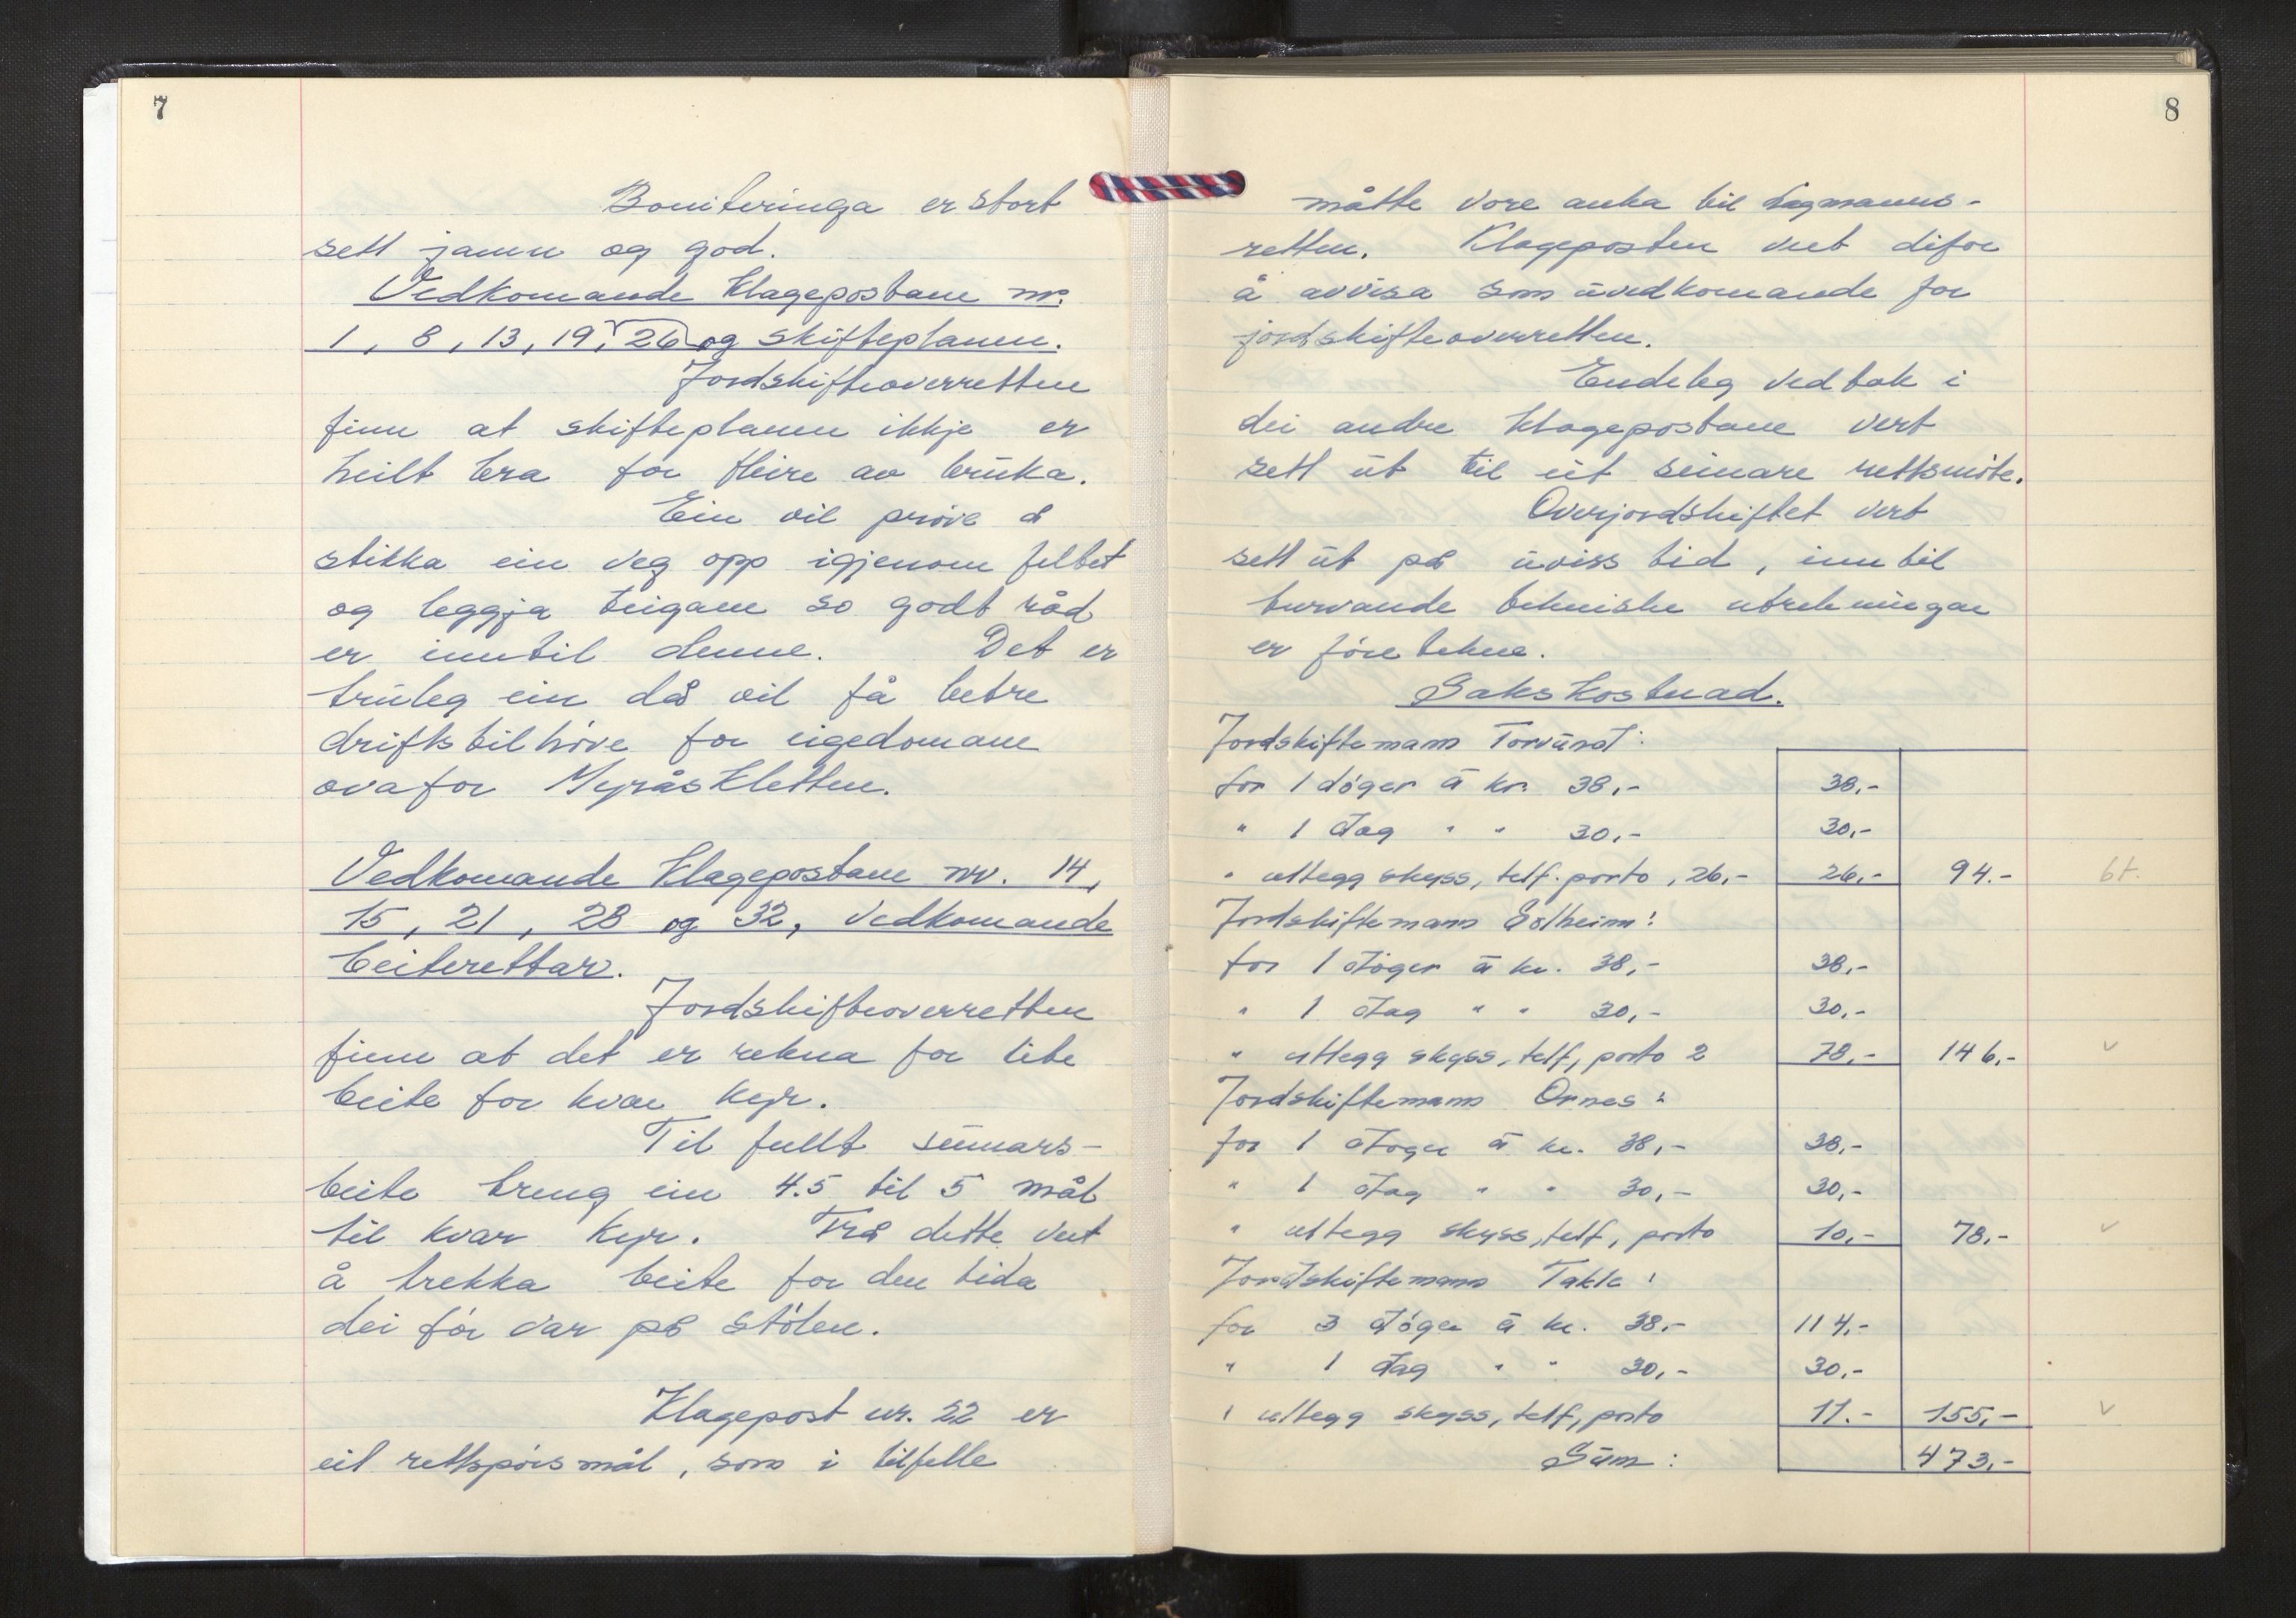 7
Boniteringa er stort
sett jamn og god.
Vedkomande klagepostane nr.
1, 8, 13, 19, 26 og skifteplanen.
Jordskifteoverretten
finn at skifteplanen ikkje er
heilt bra for fleire av bruka.
Ein vil prøve å
stikka ein veg opp igjenom feltet
og leggja teigane so godt råd
er inntil denne. Det er
truleg ein då vil få betre
driftstilhøve for eigedomane
ovafor Myråskletten.
Vedkomande klagepostane nr. 14,
15, 21, 28 og 32, vedkomande
beiterettar.
Jordskifteoverretten
finn at det er rekna for lite
beite for kvar kyr.
Til fullt sumars-
beite treng ein 4.5 til 5 mål
til kvar kyr. Frå dette vert
å trekka beite for den tida
dei fór var på stölen.
Klagepost nr. 22 er
eit rettspörsmål, som i tilfelle
8
måtte vore anka til Lagmanns-
retten. Klageposten vert difor
å avvisa som uvedkomande for
jordskifteoverretten.
Endeleg vedtak i
dei andre klagepostane vert
sett ut til eit seinare rettsmöte.
Overjordskiftet vert
sett ut på uviss tid, inntil
turvande tekniske utrekningar
er företekne.
Sakskostnad.
Jordskiftemann Torvund:
for 1 döger à kr. 38,- 38,-
" 1 dag " " 30,- 30,-
" utlegg skyss, telf. porto, 26,- 26,- 94.- bt.
Jordskiftemann Solheim:
for 1 döger à kr. 38,- 38,-
" 1 dag " " 30,- 30,-
" utlegg skyss, telf, porto 2 78,- 146,- v
Jordskiftemann Ornes:
for 1 döger à kr. 38,- 38,-
" 1 dag " " 30,- 30,-
" utlegg skyss, telf, porto 10,- 78,- v
Jordskiftemann Takle:
for 3 döger à kr. 38,- 114,-
" 1 dag " " 30,- 30,-
" utlegg skyss, telf, porto 11.- 155,- v
Sum: 473,-